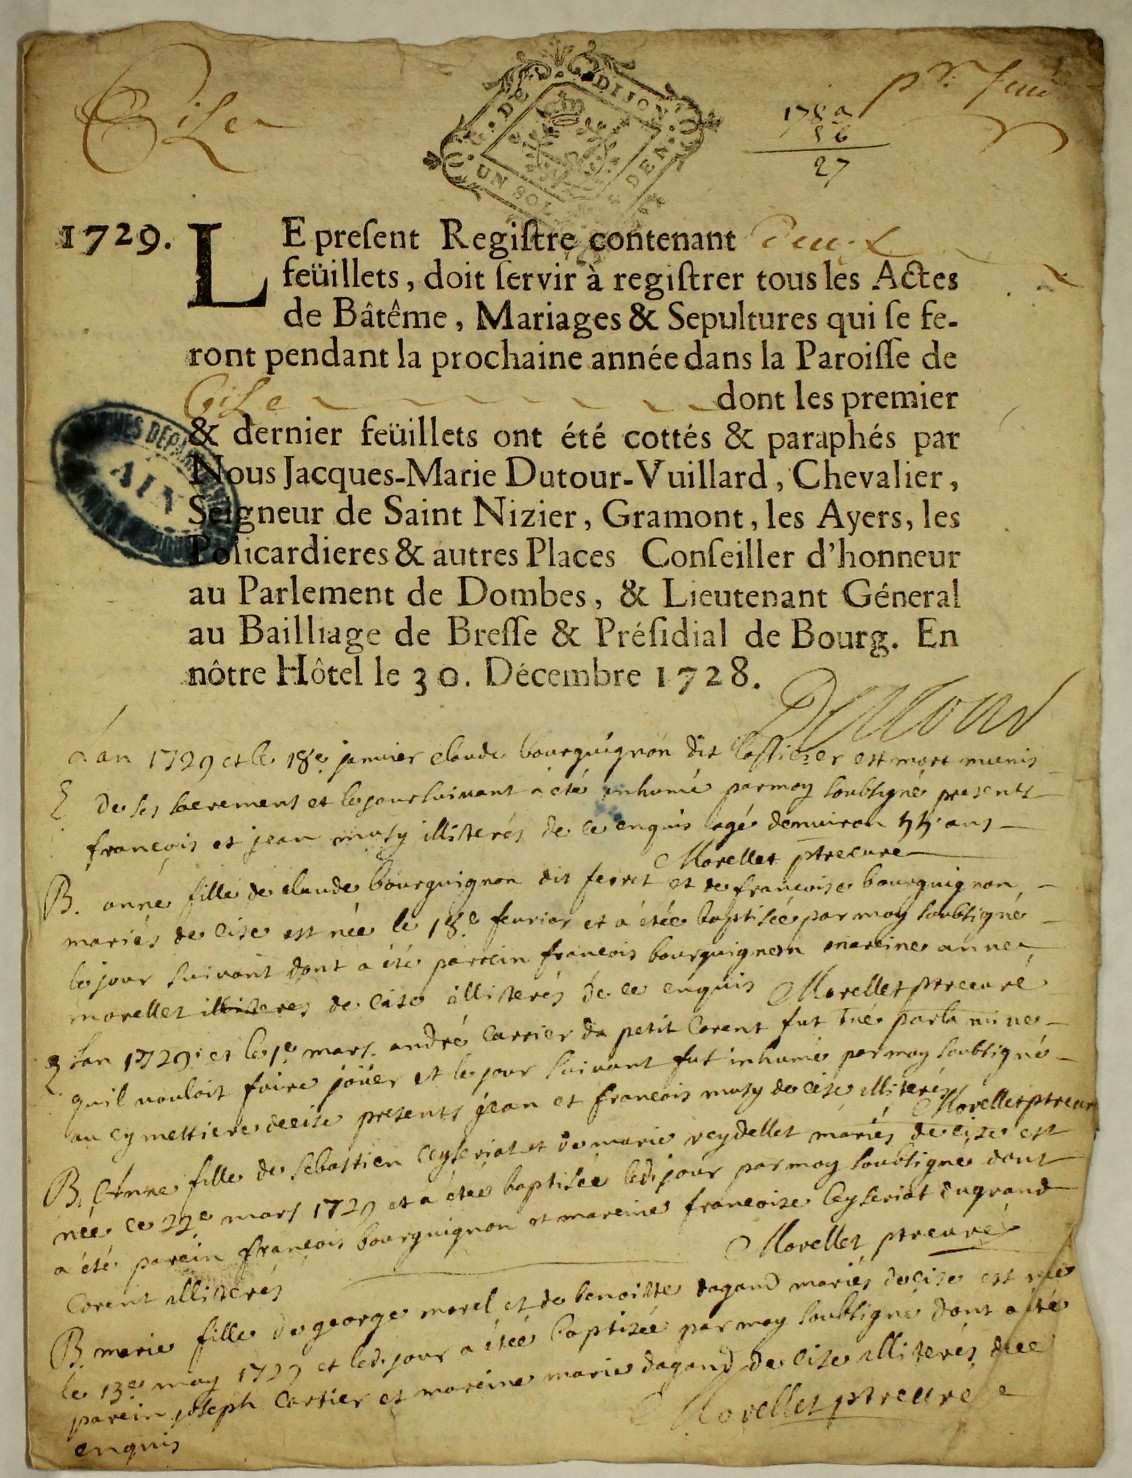 Cise
G. DE DIJON
UN SOL DEN.
pr.
27
1729. LE preſent Regiſtre contenant deux
feüillets, doit ſervir à regiſtrer tous les Actes
de Bâtême, Mariages & Sepultures qui ſe fe-
ront pendant la prochaine année dans la Paroiſſe de
Cise dont les premier
& dernier feüillets ont été cottés & paraphés par
Nous Jacques-Marie Dutour-Vuillard, Chevalier,
Seigneur de Saint Nizier, Gramont, les Ayers, les
Policardieres & autres Places Conſeiller d'honneur
au Parlement de Dombes, & Lieutenant Géneral
au Bailliage de Breſſe & Préſidial de Bourg. En
nôtre Hôtel le 30. Décembre 1728.
ARCHIVES DEPAR
AIN
Dutour
L'an 1729 et le 18e janvier claude bourguignon dit est mort munis
de ses sacrement et le jour suivant a été inhumé par moy soubsigné presents
françois et jean musy illiterés de ce enquis agé denviron 55 ans
Morellet ptre curé
B. anne fille de claude bourguignon dit ferret et de francoise bourguignon
mariés de cise est née le 18e fevrier et a étée baptisée par moy soubsigné
le jour suivant dont a été parrein francois bourguignon mareine anne
morellet illiteres de cise illiterés de ce enquis Morellet ptre curé
L'an 1729 et le 1er mars andré carrier du petit corent fut tué par la mine
quil vouloit faire joüer et le jour suivant fut inhumé par moy soubsigné
au cymettiere de cise presents jean et francois musy de cise illiterés Morellet ptre curé
B. Anne fille de sebastien ceyseriat et de marie reydellet mariés de cise est
née le 22e mars 1729 et a étée baptisée led. jour par moy soubsigné dont
a été parein françois bourguignon et mareine francoise ceyseriat du grand
corent illiterés Morellet ptre curé
B. marie fille de george morel et de benoiste dagand mariés de cise est née
le 13e may 1729 et led. jour a étée baptizée par moy soubsigné dont a été
parein joseph cartier et mareine marie dagand de cise illiterés de ce
enquis Morellet ptre curé